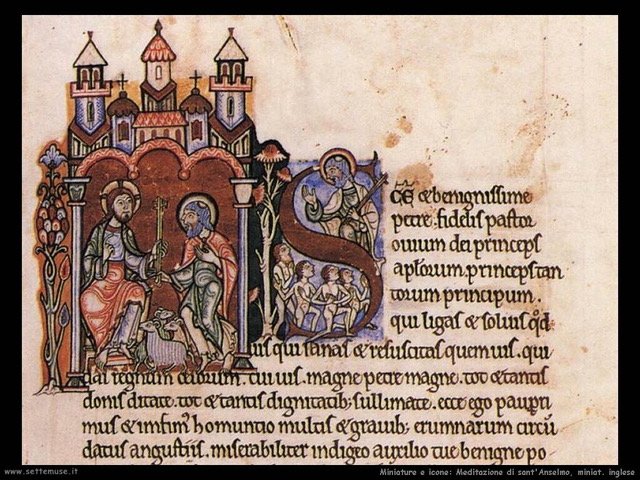 S c̄e & benignissime
petre. fidelis pastor
ouium dei princeps
ap̄lorum. princeps tan
torum principum.
qui ligas & soluis qđ
uis qui sanas & resuscitas quem uis. qui
das regnum celorum. cui uis. magne petre magne. tot & tantis
donis ditate. tot & tantis dignitatib; sullimate. ecce ego paupri
mus & infim' homuntio multis & grauib; erumnarum circū
datus angustiis. miserabiliter indigeo auxilio tue benigne po
www.settemuse.it
Miniature e icone: Meditazione di sant'Anselmo, miniat. inglese